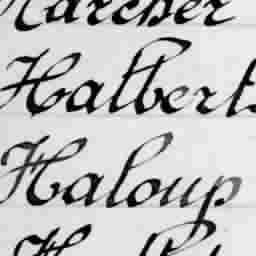 Karcher
Halberts
Haloup